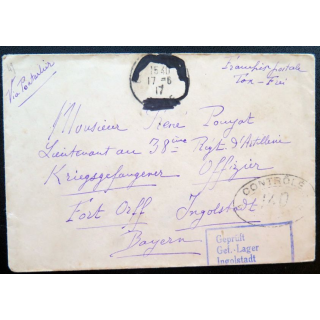 Via Pontarlier
15 40
17-6
17
Franchise postale
Tax-Frei
Monsieur René Pouyat
Lieutenant au 38ème Regt d'Artillerie
Kriegsgefangener Offizier
Fort Orff Ingolstadt
Bayern
CONTRÔLE
Geprüft
Gef.-Lager
Ingolstadt